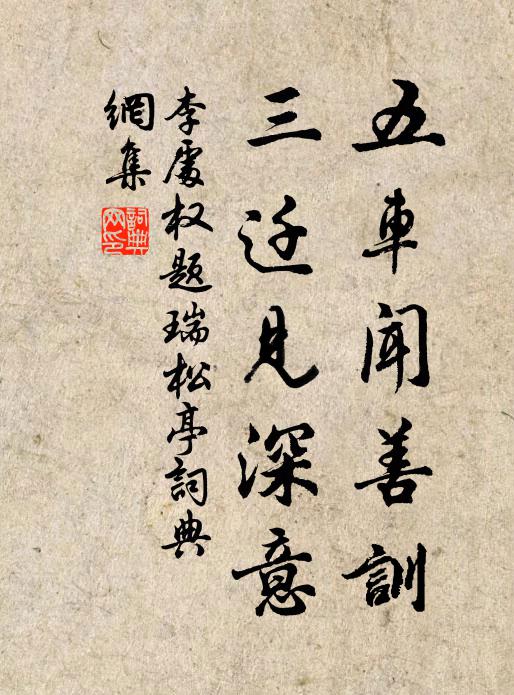 五車聞善訓
三迁見深意
李處权题瑞松亭詞典
網集
詞典
网印